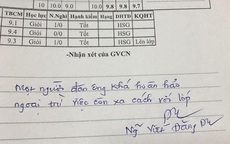 10 10.0 9.0 9.8 9.8 9.8
TBCM Học lực N.Nghỉ Hạnh kiểm Hạng DHTĐ KQHT
9.1 Giỏi 1/0 Tốt HSG
9.4 Giỏi 0/0 Tốt HSG
9.3 Giỏi 1/0 Tốt HSG Lên lớp
-Nhận xét của GVCN
Một người đàn ông khá hoàn hảo
ngoại trừ việc còn xa cách với lớp
Ng Viết Đăng